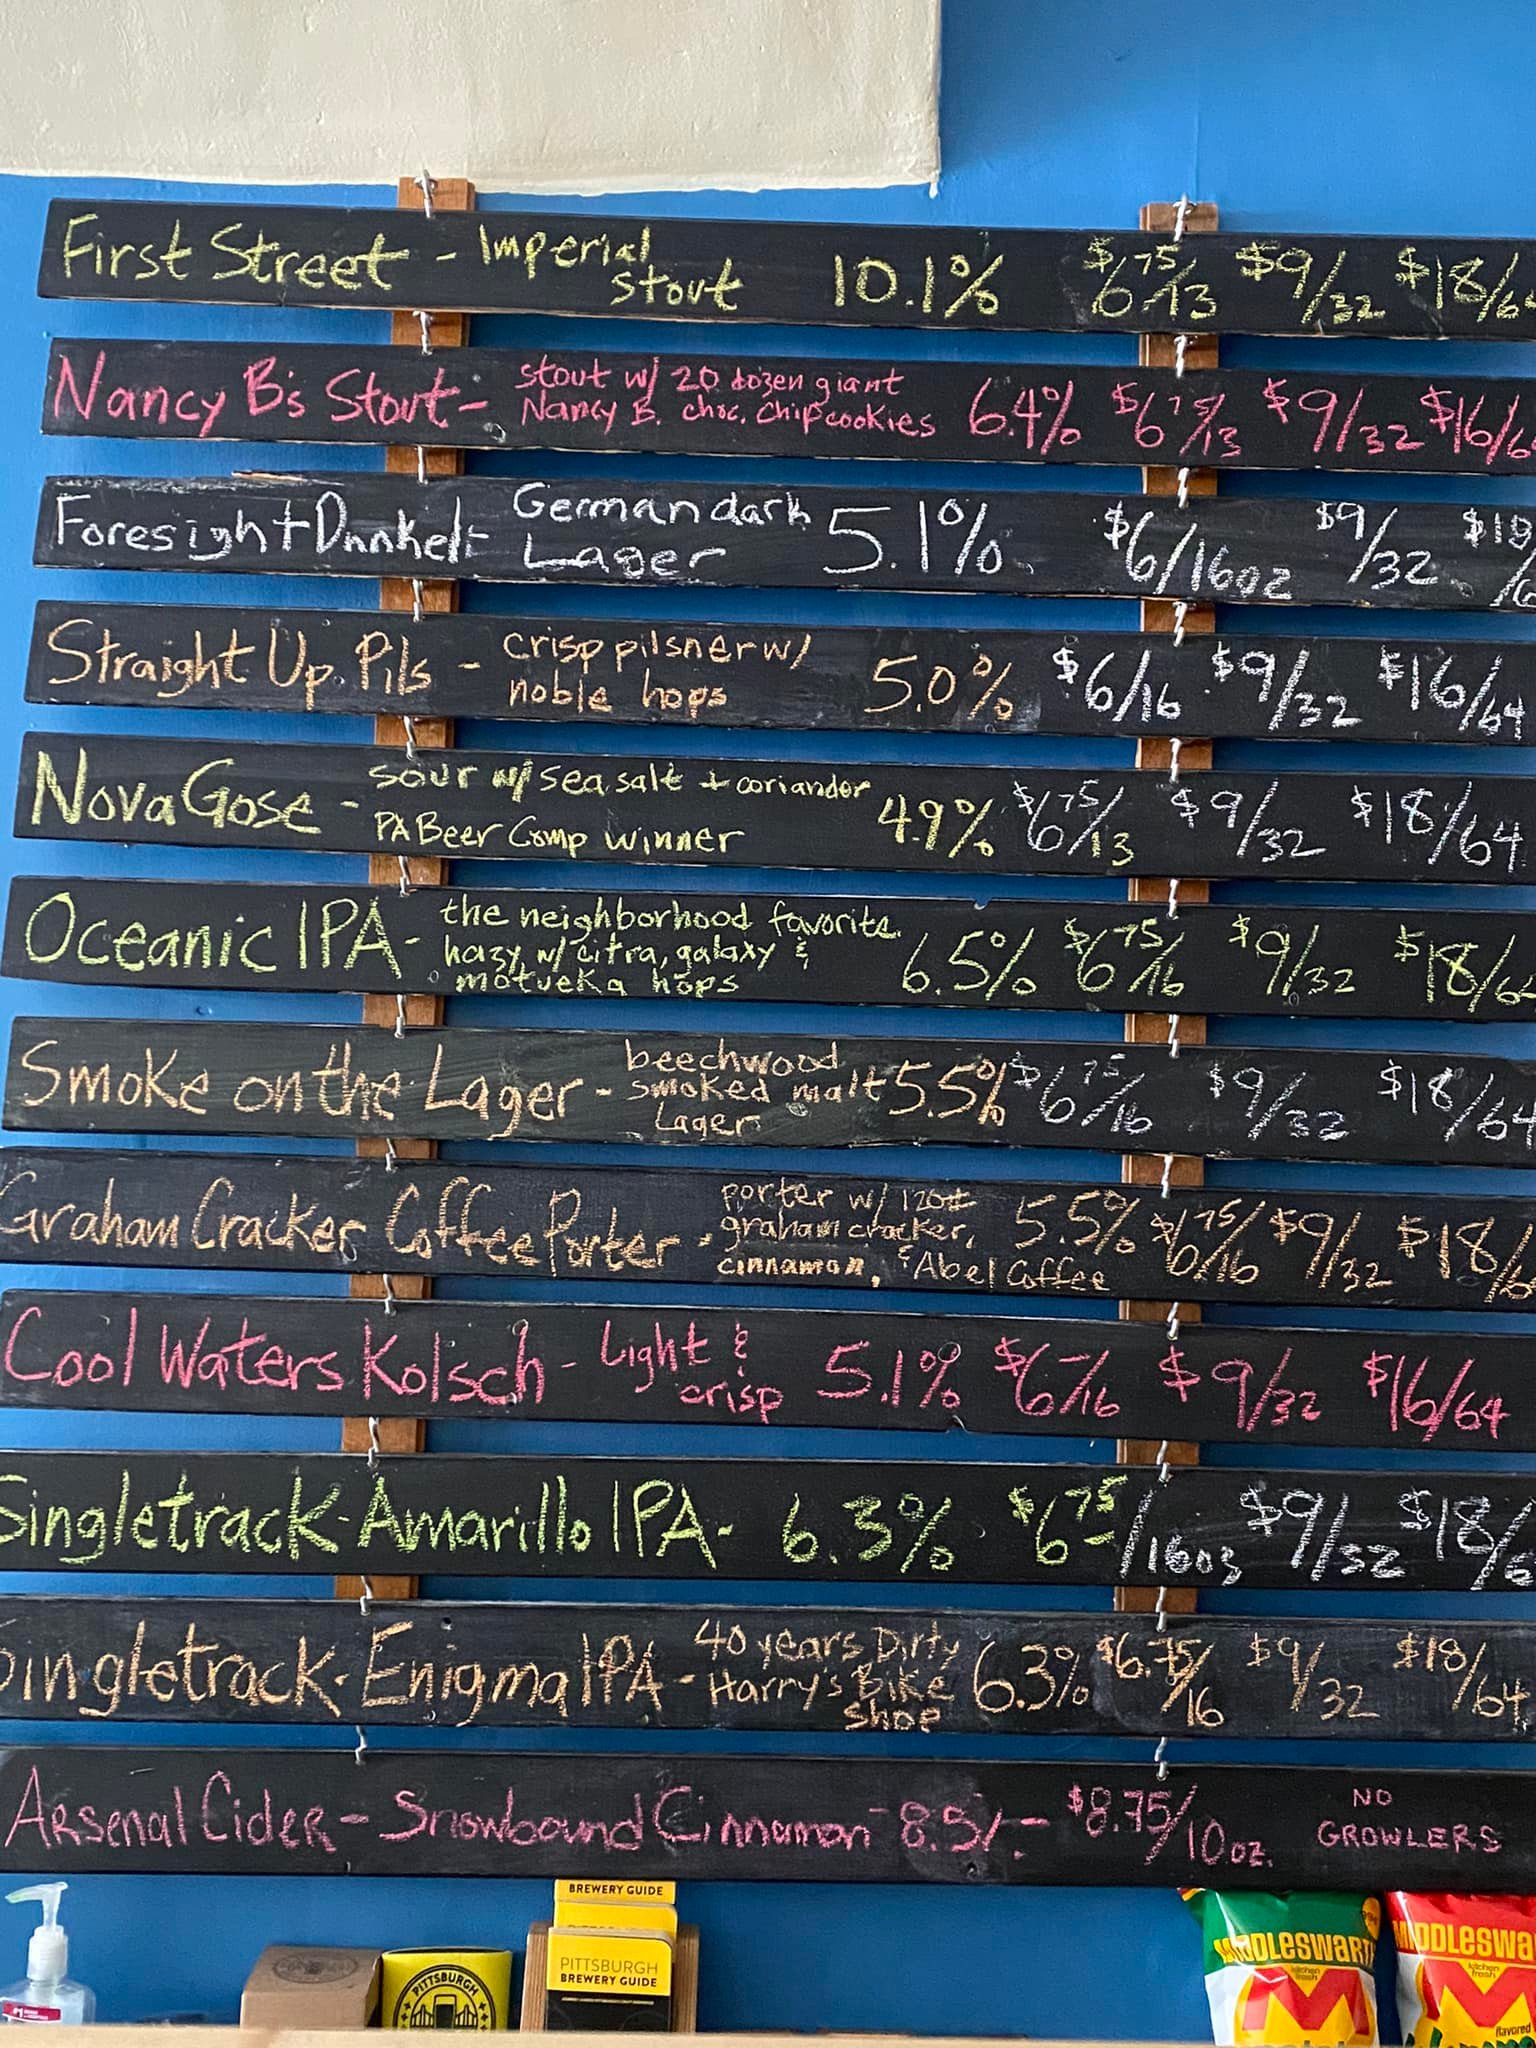 First Street - Imperial stout 10.1% $6.75/13 $9/32 $18/6
Nancy B's Stout - stout w/ 20 dozen giant Nancy B. choc. chip cookies 6.4% $6.75/13 $9/32 $16/6
Foresight Dunkel - German dark Lager 5.1% $6/16oz $9/32 $18/6
Straight Up Pils - crisp pilsner w/ noble hops 5.0% $6/16 $9/32 $16/64
Nova Gose - sour w/ sea salt + coriander PA Beer Comp winner 4.9% $6.75/13 $9/32 $18/64
Oceanic IPA - the neighborhood favorite. hazy w/ citra, galaxy & motueka hops 6.5% $6.75/16 $9/32 $18/64
Smoke on the Lager - beechwood smoked malt Lager 5.5% $6.75/16 $9/32 $18/64
Graham Cracker Coffee Porter - porter w/ 120# graham cracker, cinnamon, & Abel Coffee 5.5% $6.75/16 $9/32 $18/6
Cool Waters Kolsch - Light & crisp 5.1% $6/16 $9/32 $16/64
Singletrack - Amarillo IPA - 6.3% $6.75/16oz $9/32 $18/6
Singletrack - Enigma IPA - 40 years Dirty Harry's Bike Shop 6.3% $6.75/16 $9/32 $18/64
Arsenal Cider - Snowbound Cinnamon - 8.5% - $8.75/10oz. NO GROWLERS
BREWERY GUIDE
PITTSBURGH
BREWERY GUIDE
PITTSBURGH
MIDDLESWART
kitchen fresh
MIDDLESWA
kitchen fresh
flavored